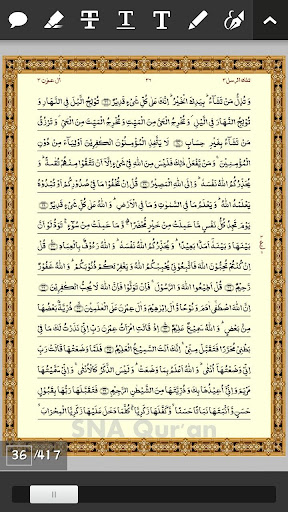 T T
تلك الرسل ٣ ٣٦ اٰل عمرٰن ٣
وَتُذِلُّ مَنْ تَشَآءُ ؕ بِيَدِكَ الْخَيْرُ ؕ اِنَّكَ عَلٰى كُلِّ شَيْءٍ قَدِيْرٌ ﴿٢٦﴾ تُوْلِجُ الَّيْلَ فِي النَّهَارِ وَ
تُوْلِجُ النَّهَارَ فِي الَّيْلِ ؗ وَتُخْرِجُ الْحَيَّ مِنَ الْمَيِّتِ وَتُخْرِجُ الْمَيِّتَ مِنَ الْحَيِّ ؗ وَتَرْزُقُ
مَنْ تَشَآءُ بِغَيْرِ حِسَابٍ ﴿٢٧﴾ لَا يَتَّخِذِ الْمُؤْمِنُوْنَ الْكٰفِرِيْنَ اَوْلِيَآءَ مِنْ دُوْنِ
الْمُؤْمِنِيْنَ ۚ وَمَنْ يَّفْعَلْ ذٰلِكَ فَلَيْسَ مِنَ اللّٰهِ فِيْ شَيْءٍ اِلَّآ اَنْ تَتَّقُوْا مِنْهُمْ تُقٰىةً ؕ وَ
يُحَذِّرُكُمُ اللّٰهُ نَفْسَهٗ ؕ وَاِلَى اللّٰهِ الْمَصِيْرُ ﴿٢٨﴾ قُلْ اِنْ تُخْفُوْا مَا فِيْ صُدُوْرِكُمْ اَوْ تُبْدُوْهُ
يَعْلَمْهُ اللّٰهُ ؕ وَيَعْلَمُ مَا فِي السَّمٰوٰتِ وَمَا فِي الْاَرْضِ ؕ وَاللّٰهُ عَلٰى كُلِّ شَيْءٍ قَدِيْرٌ ﴿٢٩﴾
يَوْمَ تَجِدُ كُلُّ نَفْسٍ مَّا عَمِلَتْ مِنْ خَيْرٍ مُّحْضَرًا ۛۖ وَّمَا عَمِلَتْ مِنْ سُوْٓءٍ ۛۚ تَوَدُّ لَوْ اَنَّ
بَيْنَهَا وَبَيْنَهٗٓ اَمَدًۢا بَعِيْدًا ؕ وَيُحَذِّرُكُمُ اللّٰهُ نَفْسَهٗ ؕ وَاللّٰهُ رَءُوْفٌۢ بِالْعِبَادِ ﴿٣٠﴾ قُلْ
اِنْ كُنْتُمْ تُحِبُّوْنَ اللّٰهَ فَاتَّبِعُوْنِيْ يُحْبِبْكُمُ اللّٰهُ وَيَغْفِرْ لَكُمْ ذُنُوْبَكُمْ ؕ وَاللّٰهُ غَفُوْرٌ
رَّحِيْمٌ ﴿٣١﴾ قُلْ اَطِيْعُوا اللّٰهَ وَالرَّسُوْلَ ۚ فَاِنْ تَوَلَّوْا فَاِنَّ اللّٰهَ لَا يُحِبُّ الْكٰفِرِيْنَ ﴿٣٢﴾
اِنَّ اللّٰهَ اصْطَفٰٓى اٰدَمَ وَنُوْحًا وَّاٰلَ اِبْرٰهِيْمَ وَاٰلَ عِمْرٰنَ عَلَى الْعٰلَمِيْنَ ﴿٣٣﴾ ذُرِّيَّةًۢ بَعْضُهَا
مِنْۢ بَعْضٍ ؕ وَاللّٰهُ سَمِيْعٌ عَلِيْمٌ ﴿٣٤﴾ اِذْ قَالَتِ امْرَاَتُ عِمْرٰنَ رَبِّ اِنِّيْ نَذَرْتُ لَكَ مَا فِيْ
بَطْنِيْ مُحَرَّرًا فَتَقَبَّلْ مِنِّيْ ۚ اِنَّكَ اَنْتَ السَّمِيْعُ الْعَلِيْمُ ﴿٣٥﴾ فَلَمَّا وَضَعَتْهَا قَالَتْ رَبِّ
اِنِّيْ وَضَعْتُهَآ اُنْثٰى ؕ وَاللّٰهُ اَعْلَمُ بِمَا وَضَعَتْ ؕ وَلَيْسَ الذَّكَرُ كَالْاُنْثٰى ۚ وَاِنِّيْ سَمَّيْتُهَا
مَرْيَمَ وَاِنِّيْٓ اُعِيْذُهَا بِكَ وَذُرِّيَّتَهَا مِنَ الشَّيْطٰنِ الرَّجِيْمِ ﴿٣٦﴾ فَتَقَبَّلَهَا رَبُّهَا بِقَبُوْلٍ
حَسَنٍ وَّاَنْۢبَتَهَا نَبَاتًا حَسَنًا ۙ وَّكَفَّلَهَا زَكَرِيَّا ؕ كُلَّمَا دَخَلَ عَلَيْهَا زَكَرِيَّا الْمِحْرَابَ ۙ
SNA Qur'an
36 /417